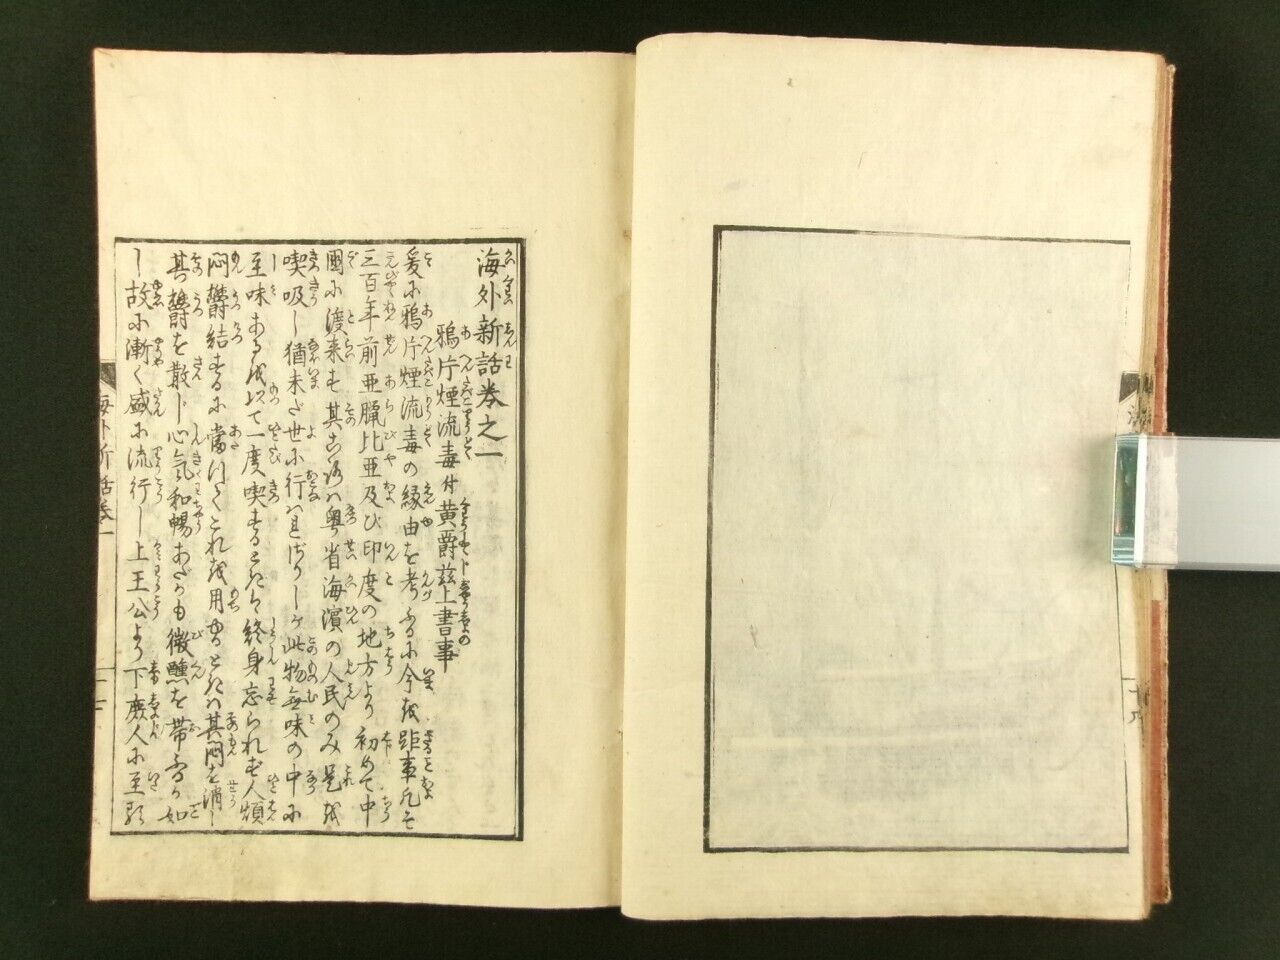 海外新話巻之一
鴉片煙流毒付黄爵玆上書事
爰に鴉片煙流毒の縁由を考ふるに今を距事凡そ
三百年前亜臘比亜及び印度の地方より初めて中
国に渡来す其ころハ粤省海濱の人民のみ是を
喫吸し猶未だ世に行ハれざりしが此物無味の中に
至味あるを以て一度喫するときハ終身忘られず人煩
悶欝結するに当つてこれを用ゆるときハ其悶を消し
其欝を散じ心気和暢あたかも微醺を帯ふるが如
し故に漸く盛に流行し上王公より下庶人に至る
海外新話巻一